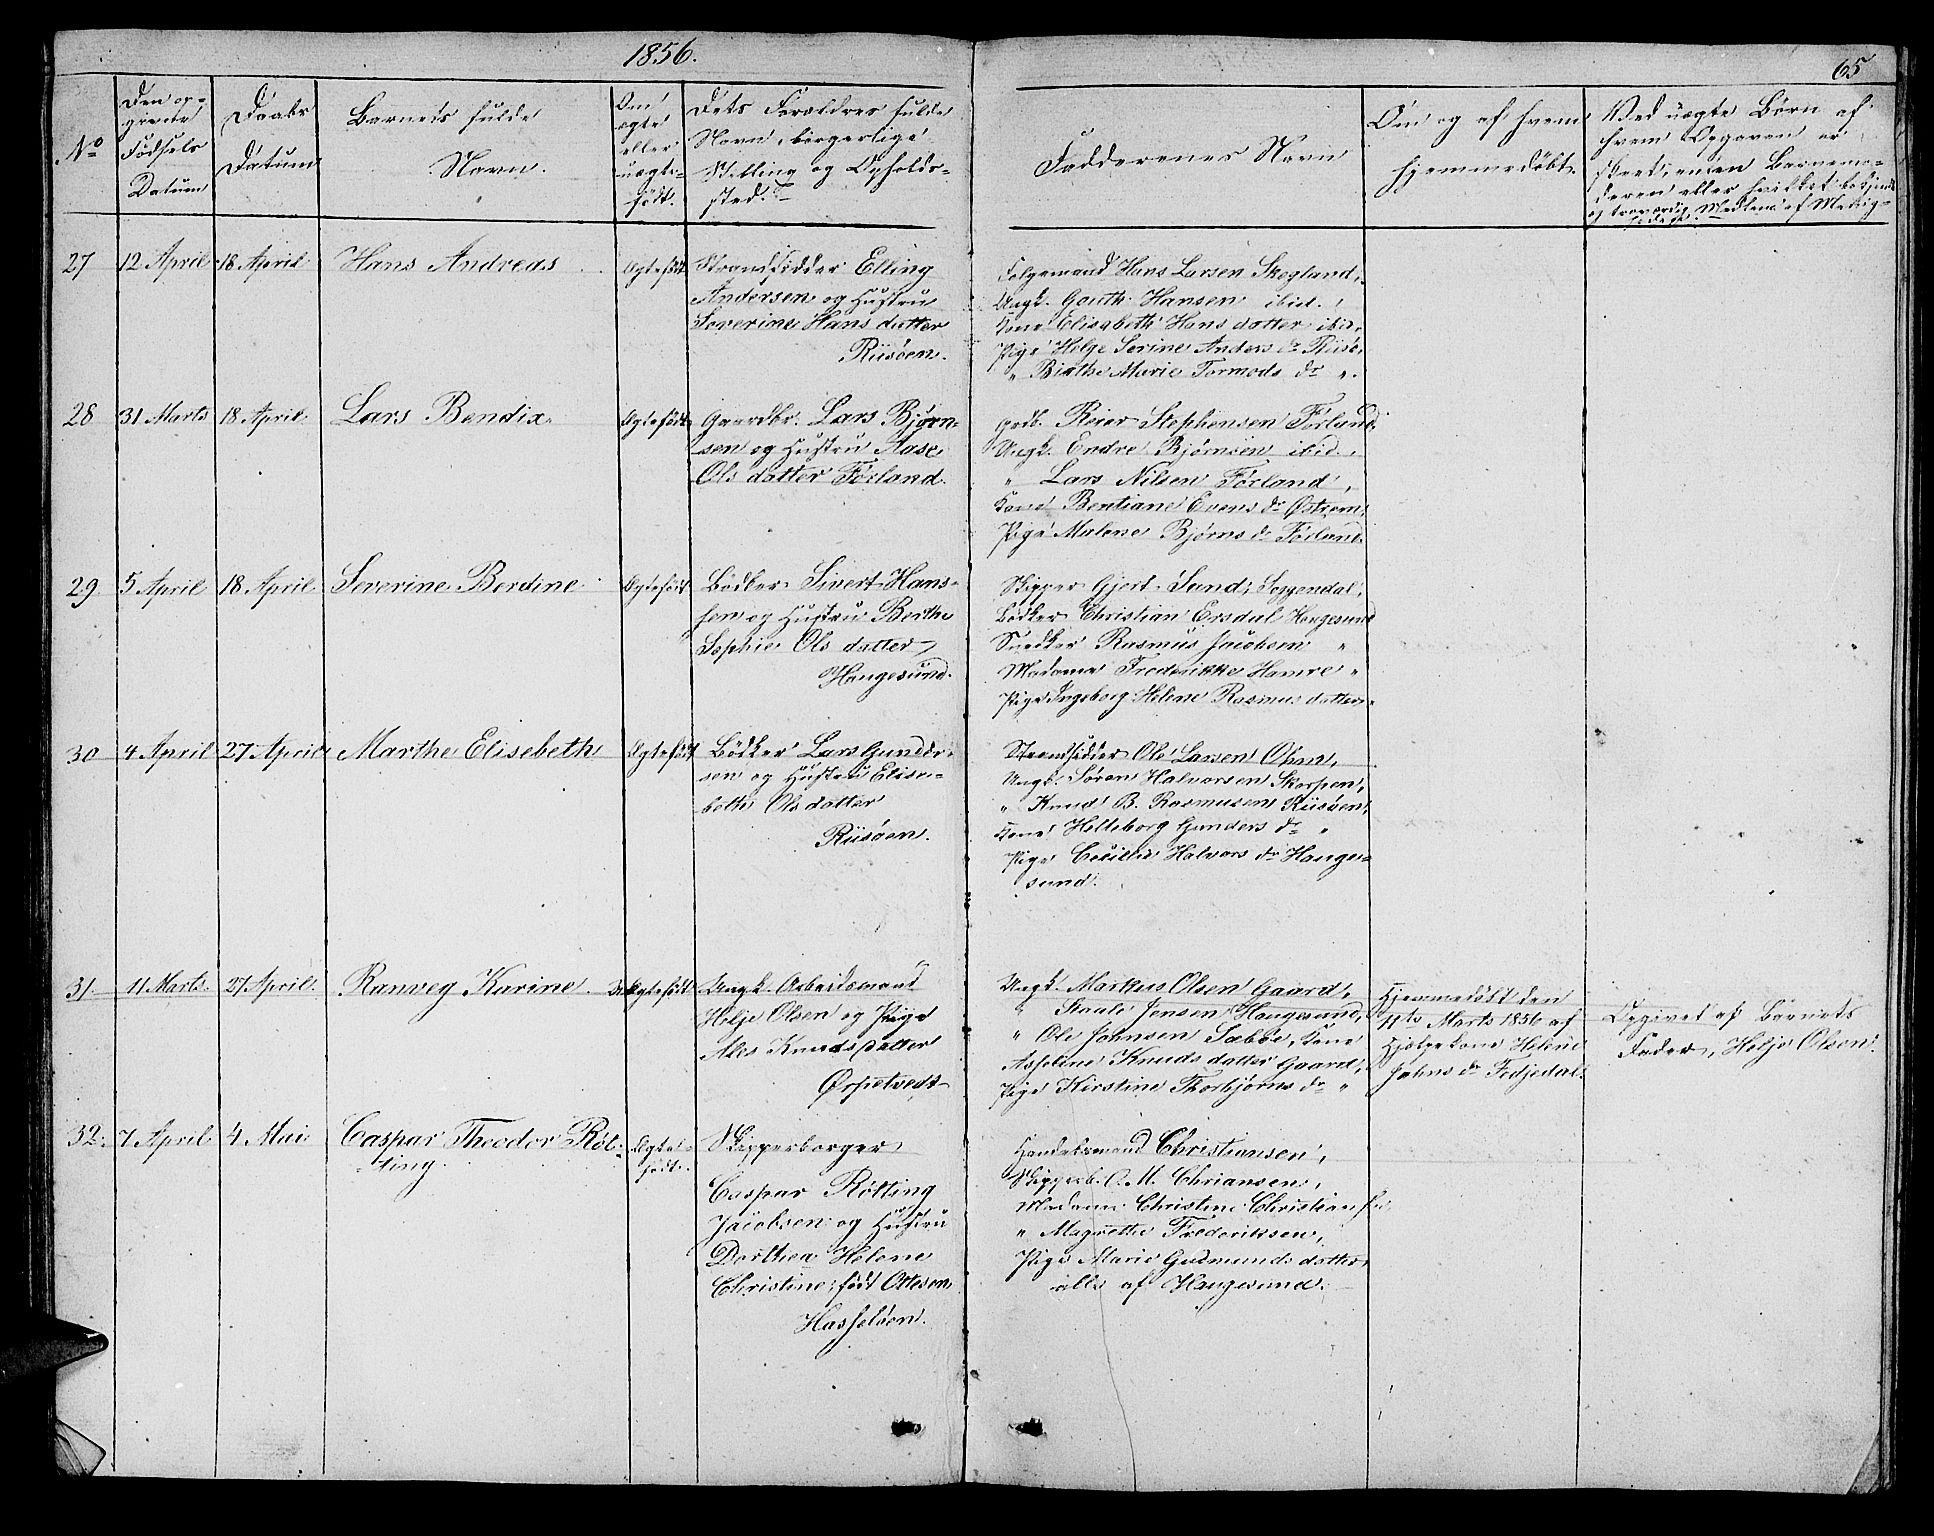 1856.
65
No
Den op-
givne
Fødsels
Datum
Daabs
Datum
Barnets fulde
Navn.
Om
ægte
eller
uægte
født.
Dets Forældres fulde
Navn, borgerlige
Stilling og Opholds-
sted.
Faddernes Navn
Om og af hvem
hjemmedøbt.
Ved uægte Børn af
hvem Opgaven er
skeet, enten Barnemo-
deren eller hvilket
og troværdig Medlem af Menig-
heden.
27 12 April 18 April Hans Andreas Ægtefødt
Strandsidder Elling
Andersen og Hustru
Severine Hans datter
Riisøen.
Følgemand Hans Larsen Skogland,
Ungk. Gouth Hansen ibid.,
Kone Elisabeth Hans datter ibid,
Pige Helge Serine Anders dr Riisø,
" Birthe Marie Tormods dr ".
28 31 Marts 18 April Lars Bendix Ægtefødt
Gaardbr. Lars Bjørn-
sen og Hustru Aase
Ols datter Førland.
Grdb. Reier Stephensen Førland,
Ungk. Endre Bjørnsen ibid.,
" Lars Nilsen Førland,
Kone Bentiane Evens dr Østrem,
Pige Malene Bjørns dr Førland.
29. 5 April 18 April Severine Berdine Ægtefødt
Bødker Sivert Hans-
sen og Hustru Berthe
Sophie Ols datter
Haugesund.
Skipper Gjert Sund, Soggendal,
Bødker Christian Ersdal Haugesund
Snedker Rasmus Jacobsen "
Madame Frederikke Hamre "
Pige Ingeborg Helene Rasmus datter "
30 4 April 27 April Marthe Elisebeth Ægtefødt
Bødker Lars Gunder-
sen og Hustru Elise-
beth Ols datter
Riisøen.
Strandsidder Ole Larsen Ohm,
Ungk. Søren Halvorsen Skarpen,
" Knud B. Rasmusen Riisøen,
Kone Helleborg Gunders dr "
Pige Cecilie Halvors dr Hauge-
sund.
31. 11 Marts 27 April. Ranveg Karine. Uægtefødt
Ungk. Arbeidsmand
Helje Olsen og Pige
Ales Knuds datter
Ørpetvedt
Ungk. Markus Olsen Gaard,
" Staale Jensen Haugesund,
" Ole Johnsen Sæbøe, Kone
Asseline Knuds datter Gaard,
Pige Kirstine Thorbjørns dr "
Hjemmedøbt den
11te Marts 1856 af
Hjelpekone Helene
Johns dr Fedjedal.
Opgivet af Barnets
Fader, Helje Olsen.
32. 7 April 4 Mai Caspar Theodor Røt-
ting. Ægte-
født.
Skipperborger
Caspar Røtting
Jacobsen og Hustru
Dorthea Helene
Christine, født Ottesen
Hasseløen.
Handelsmand Christiansen,
Skipperb. O. M. Chriansen,
Madame Christine Christiansen,
" Magrethe Frederiksen,
Pige Marie Gudmunds datter,
alle af Haugesund.